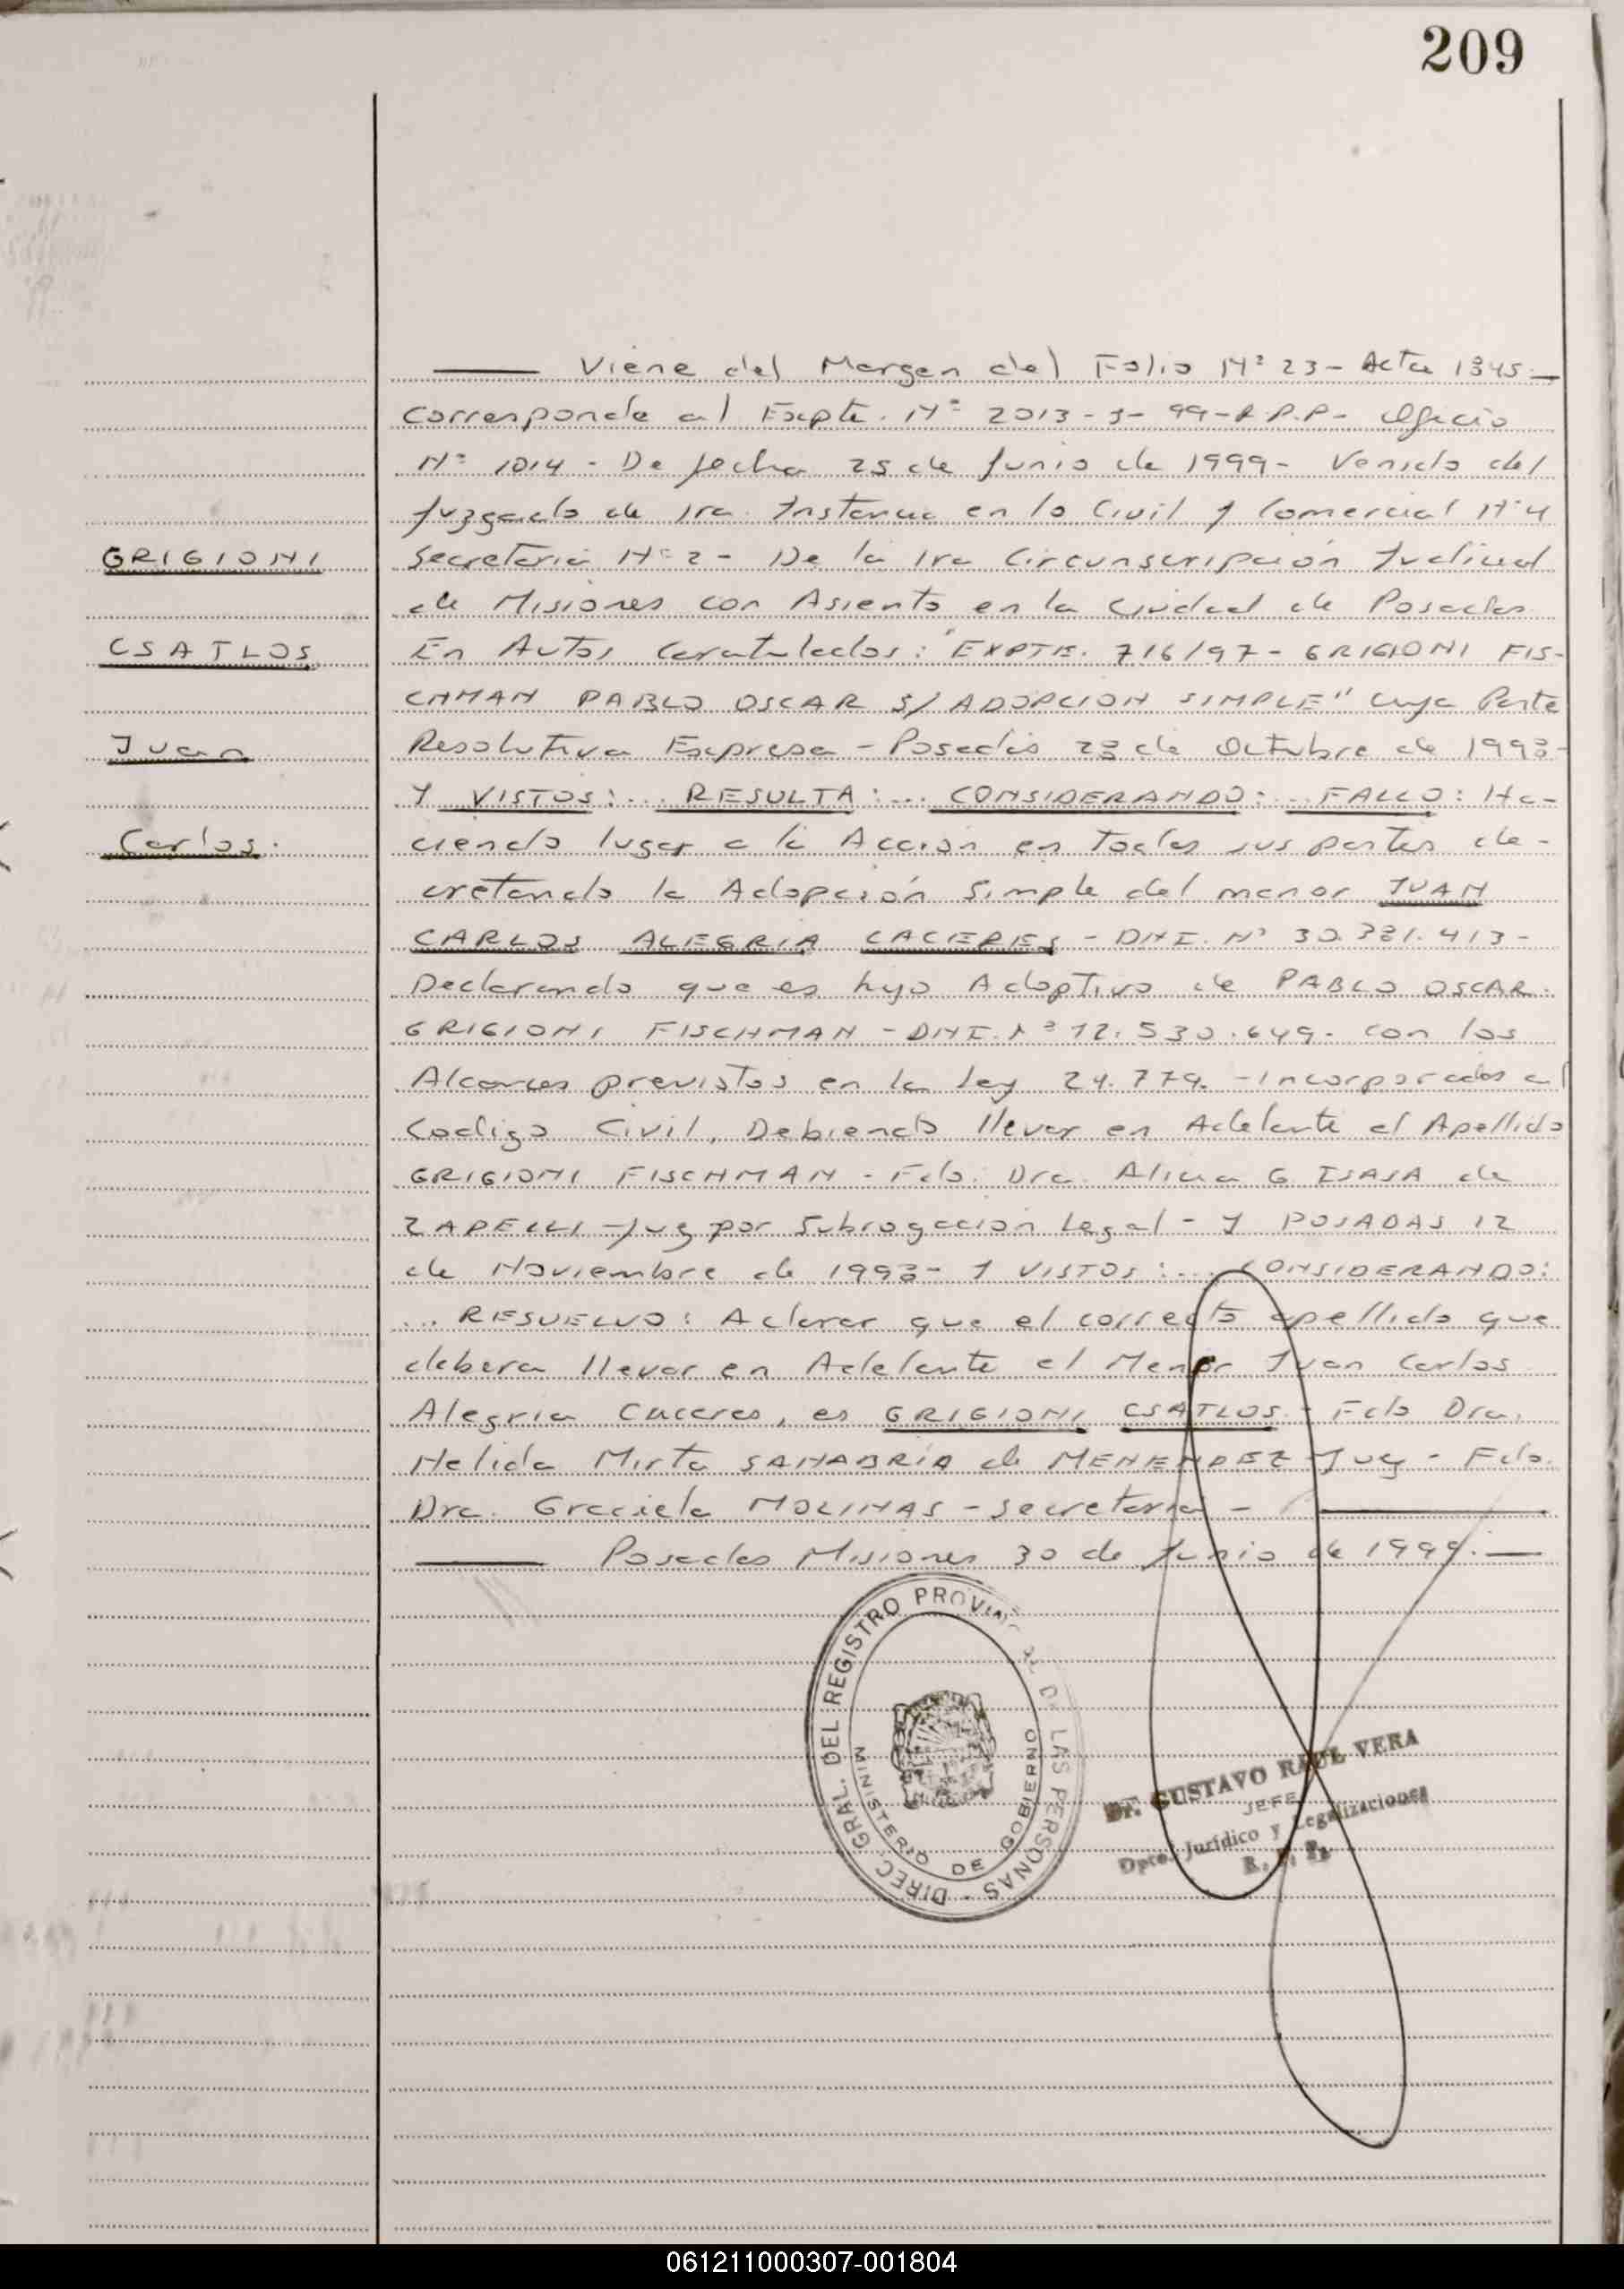 209
Viene del Margen del Folio Nº 23 - Acta 1345.-
Corresponde al Expte. Nº 2013-J-99-R.P.P- Oficio
Nº 1014 - De fecha 25 de Junio de 1999- Venido del
Juzgado de 1ra. Instancia en lo Civil y Comercial Nº 4
GRIGIONI
Secretaria Nº 2 - De la 1ra Circunscripción Judicial
de Misiones con Asiento en la Ciudad de Posadas
CSATLOS
En Autos Caratulados: "EXPTE. 716/97- GRIGIONI FIS-
CHMAN PABLO OSCAR S/ ADOPCION SIMPLE" cuya Parte
Juan
Resolutiva Expresa - Posadas 23 de Octubre de 1998-
Y VISTOS:... RESULTA:... CONSIDERANDO:... FALLO: Ha-
Carlos.
ciendo lugar a la Acción en todas sus partes de-
cretando la Adopción Simple del menor JUAN
CARLOS ALEGRIA CACERES - DNI. Nº
Declarando que es hijo Adoptivo de PABLO OSCAR.
GRIGIONI FISCHMAN - DNI. Nº 12.530.649- con los
Alcances previstos en la Ley 24.779. - incorporados al
Codigo Civil, Debiendo llevar en Adelante el Apellido
GRIGIONI FISCHMAN - Fdo. Dra. Alicia G. ISASA de
ZAPELLI - Juez por Subrogacion Legal - Y POSADAS 12
de Noviembre de 1998- Y VISTOS:... CONSIDERANDO:
... RESUELVO: Aclarar que el correcto apellido que
debera llevar en Adelante el Menor Juan Carlos
Alegria Caceres, es GRIGIONI CSATLOS.- Fdo Dra.
Helida Mirta SANABRIA de MENENDEZ - Juez - Fdo.
Dra. Graciela MOLINAS - Secretaria -
Posadas Misiones 30 de Junio de 1999.-
DIREC. GRAL. DEL REGISTRO PROVINCIAL DE LAS PERSONAS -
MINISTERIO DE GOBIERNO
Dr. GUSTAVO RAUL VERA
JEFE
Dpto. Jurídico y Legalizaciones
R. P. P.
061211000307-001804